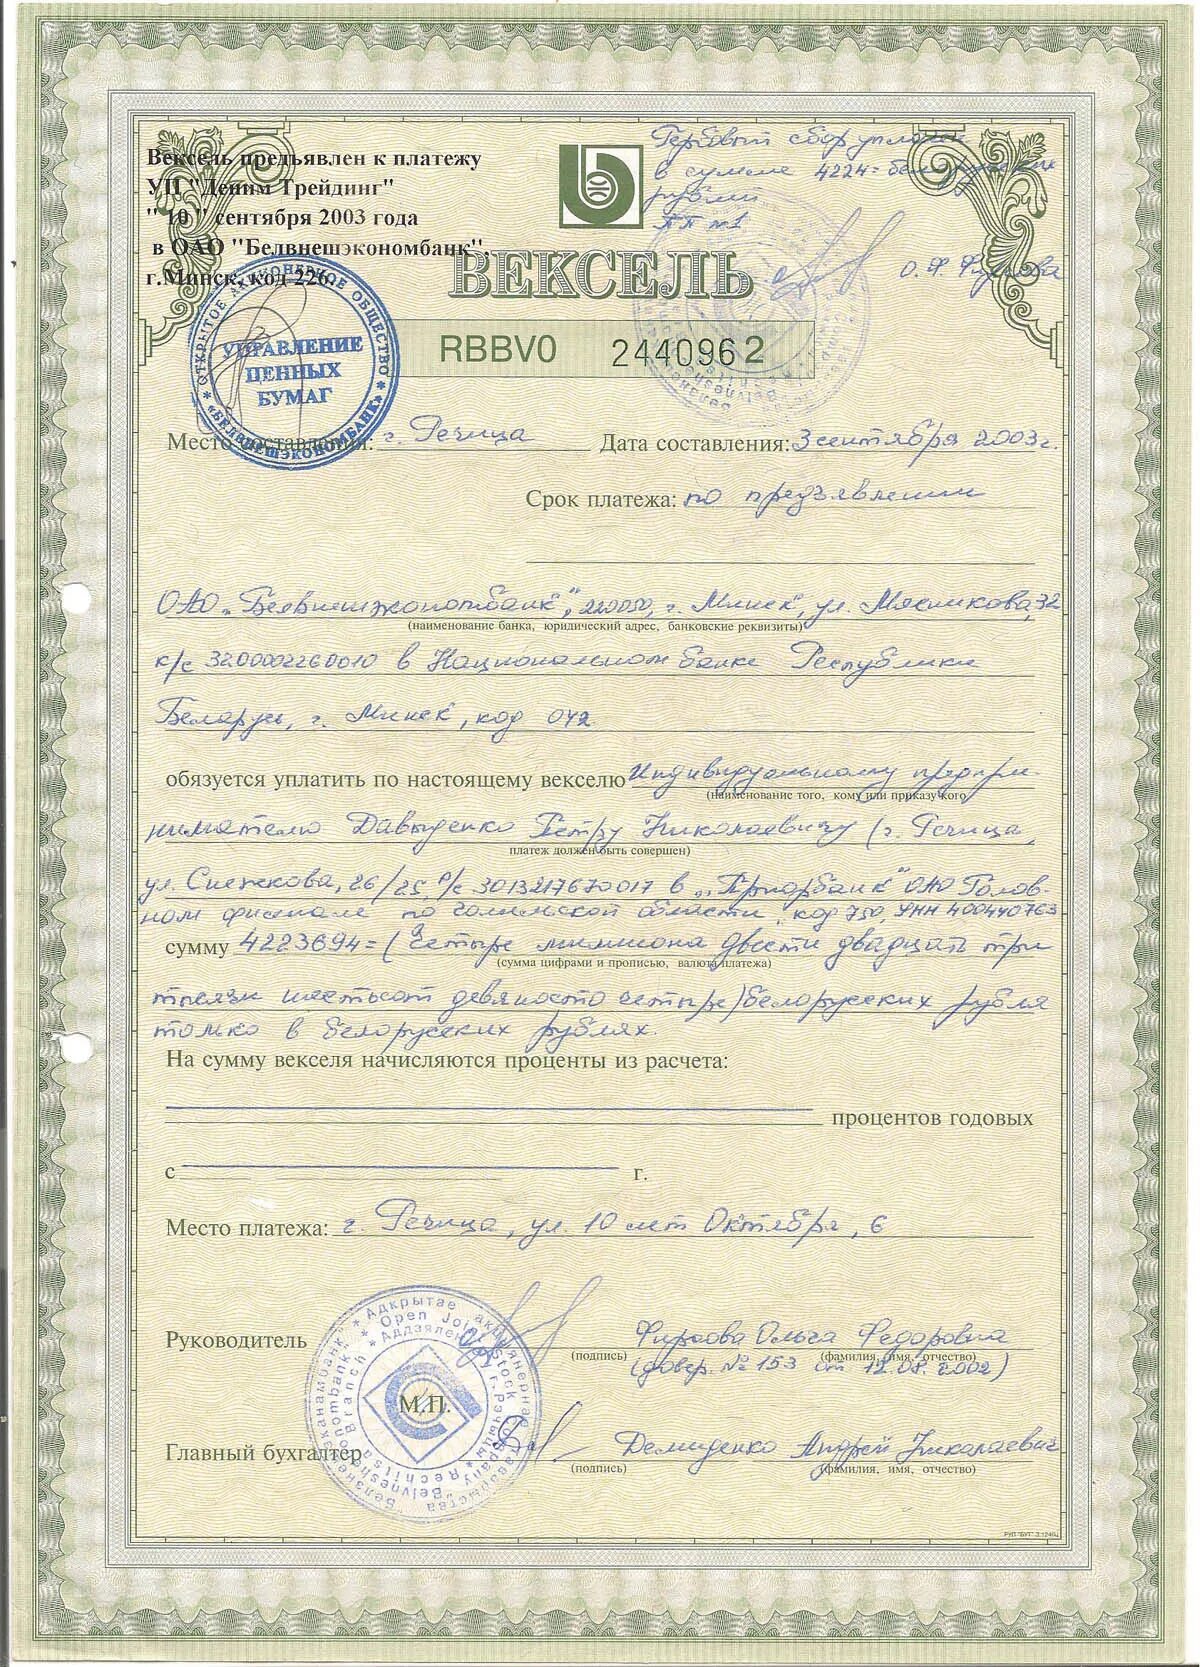 Вексель предъявлен к платежу
УП "Деним Трейдинг"
"10" сентября 2003 года
в ОАО "Белвнешэкономбанк".
г.Минск, код 226.
Гербовый сбор уплачен
в сумме 4224= белорусских
рублей
ПП №1
ВЕКСЕЛЬ
RBBV0 2440962
* ОТКРЫТОЕ АКЦИОНЕРНОЕ ОБЩЕСТВО * «БЕЛВНЕШЭКОНОМБАНК»
УПРАВЛЕНИЕ
ЦЕННЫХ
БУМАГ
Место составления: г. Речица Дата составления: 3 сентября 2003г.
Срок платежа: по предъявлении
ОАО „Белвнешэкономбанк", 220050, г. Минск, ул. Мясникова, 32
(наименование банка, юридический адрес, банковские реквизиты)
к/с 3200002260010 в Национальном банке Республики
Беларусь, г. Минск, код 042
обязуется уплатить по настоящему векселю Индивидуальному предпри-
(наименование того, кому или приказу кого
нимателю Давыденко Петру Николаевичу (г. Речица,
платеж должен быть совершен)
ул. Снежкова, 26/25, р/с 3013217670017 в „Приорбанк" ОАО Голов-
ном филиале по Гомельской области, код 750, УНН 400440763
сумму 4223694= (Четыре миллиона двести двадцать три
(сумма цифрами и прописью, валюта платежа)
тысячи шестьсот девяносто четыре) белорусских рубля
только в белорусских рублях.
На сумму векселя начисляются проценты из расчета:
процентов годовых
с г.
Место платежа: г. Речица, ул. 10 лет Октября, 6
Руководитель Фирсова Ольга Федоровна
(подпись) (фамилия, имя, отчество)
(довер. № 153 от 12.08.2002)
М.П.
Главный бухгалтер Демиденко Андрей Николаевич
(подпись) (фамилия, имя, отчество)